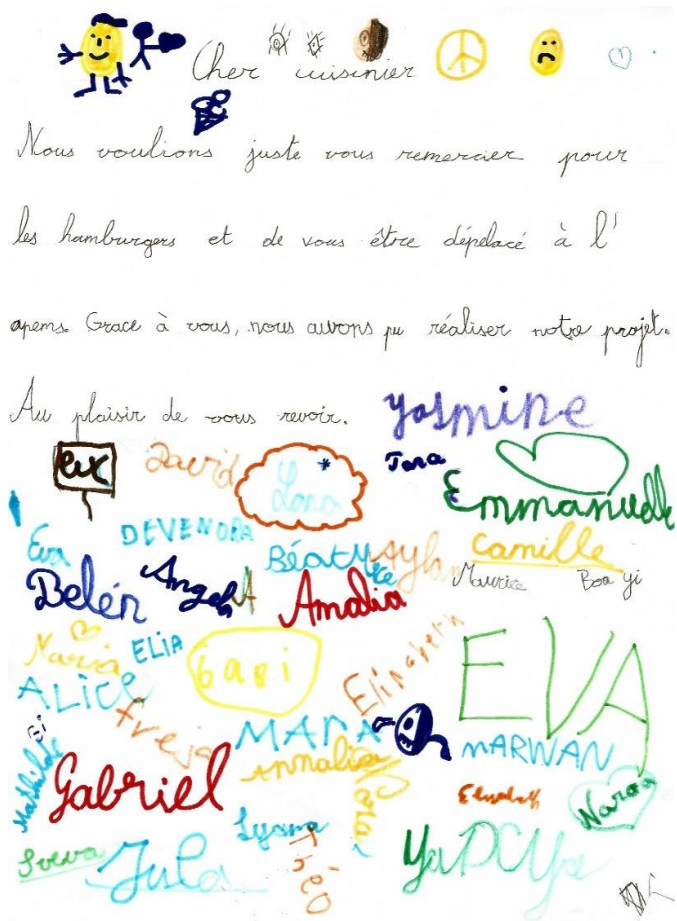 Cher cuisinier
Nous voulions juste vous remercier pour
les hamburgers et de vous être dépelacé à l'
apems. Grace à vous, nous avons pu réaliser notre projet.
Au plaisir de vous revoir.
Yasmine
David
Lona
Tara
Emmanuelle
Eva
DEVENDRA
Béatrice
Aylan
Camille
Belén
Angela
Amalia
Maurice
Boa yi
Naria
ELIA
Gabi
Elisabeth
EVA
ALICE
Freja
MARA
MARWAN
Mathilde
Gabriel
Annalia
Elisabeth
Naroa
Lyana
Théo
Sveva
Jula